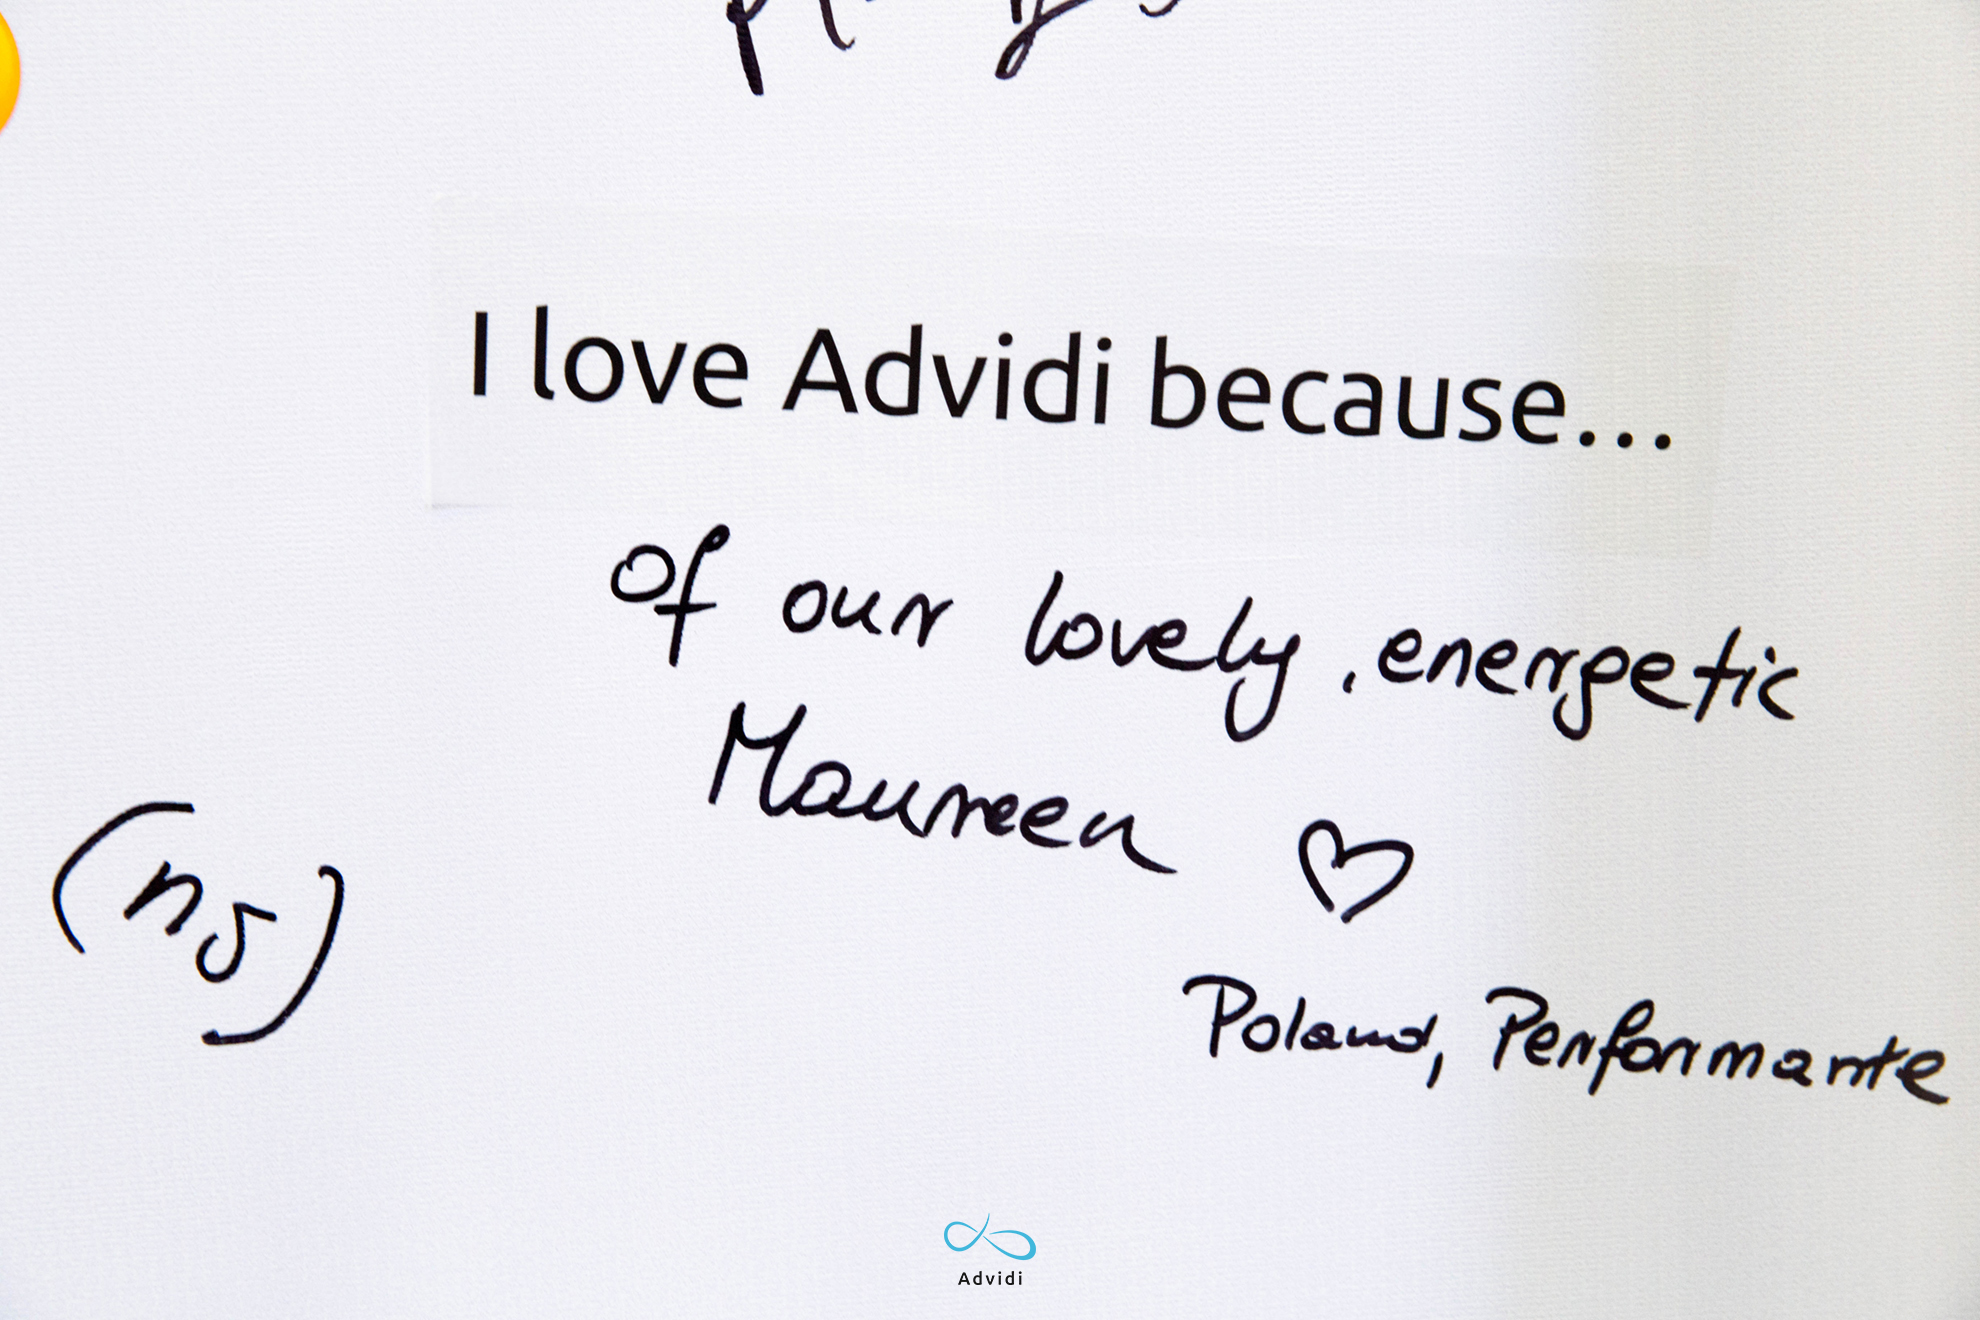 I love Advidi because...
of our lovely, energetic
Maureen
(ns)
Poland, Performante
Advidi